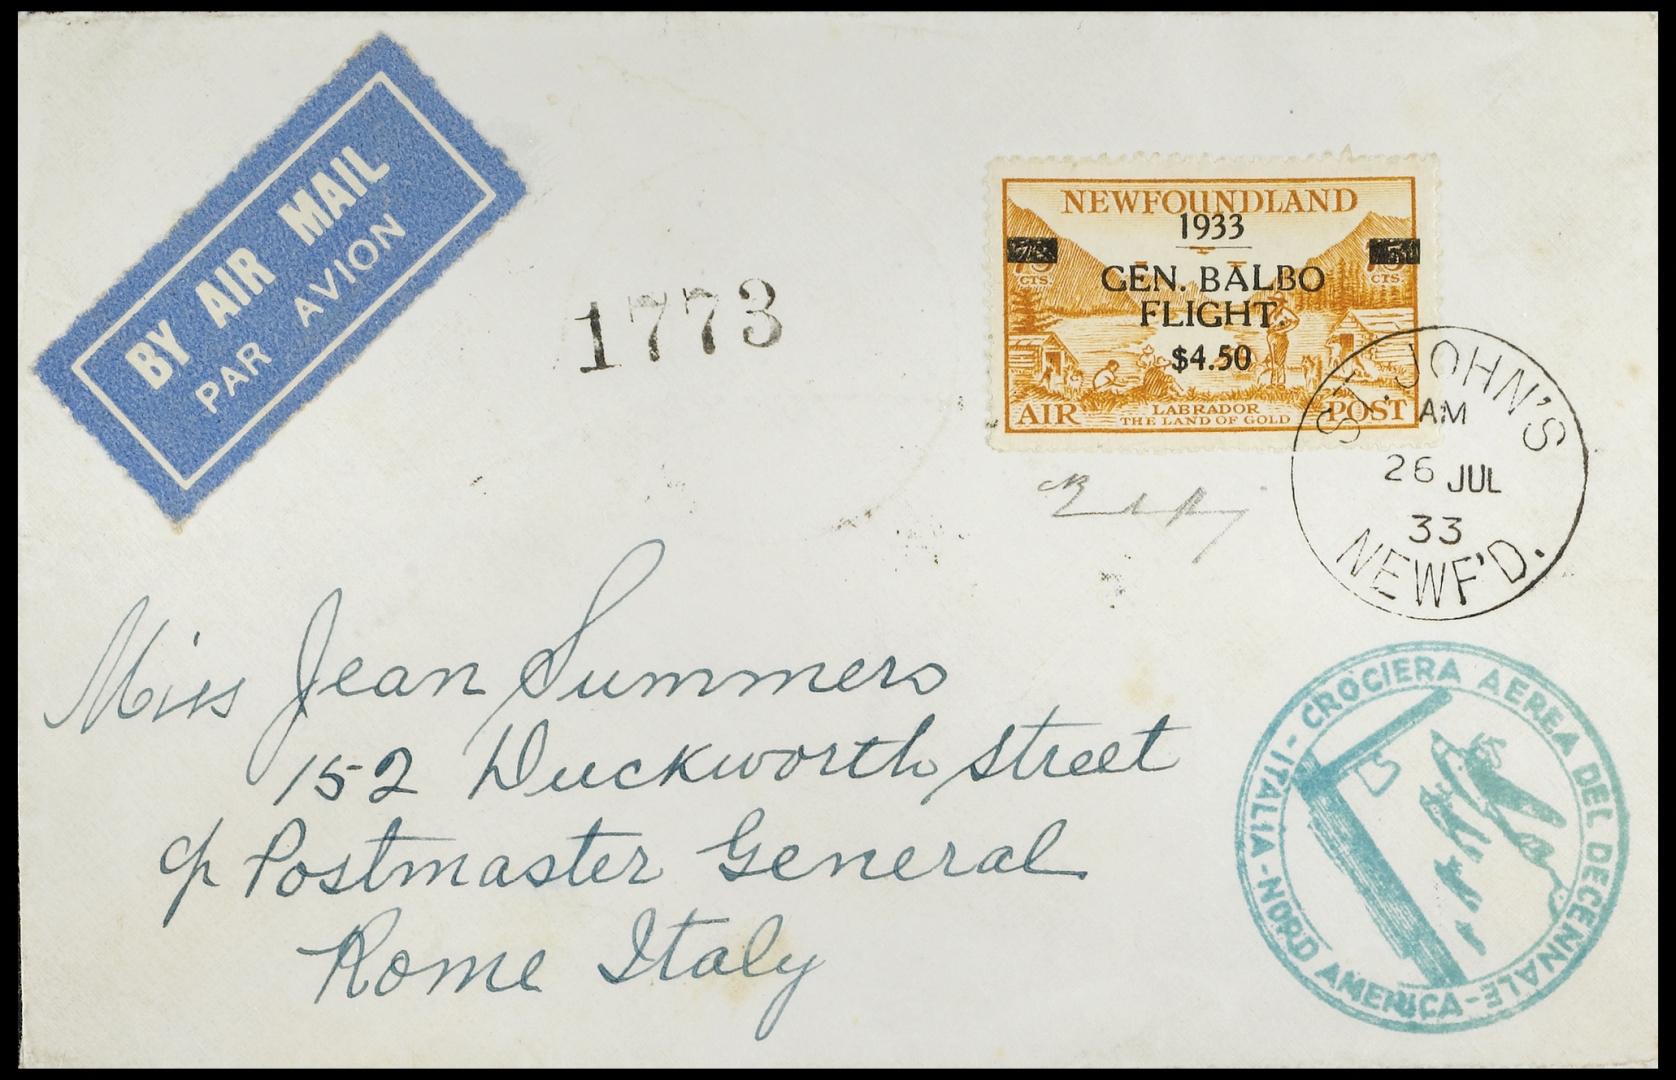 BY AIR MAIL
PAR AVION
1773
NEWFOUNDLAND
1933
75 75
CTS. CTS.
GEN. BALBO
FLIGHT.
$4.50
AIR LABRADOR POST
THE LAND OF GOLD
ST. JOHN'S
AM
26 JUL
33
NEWF'D.
Miss Jean Summers
152 Duckworth Street
c/o Postmaster General
Rome Italy
CROCIERA AEREA DEL DECENNALE - ITALIA - NORD AMERICA -